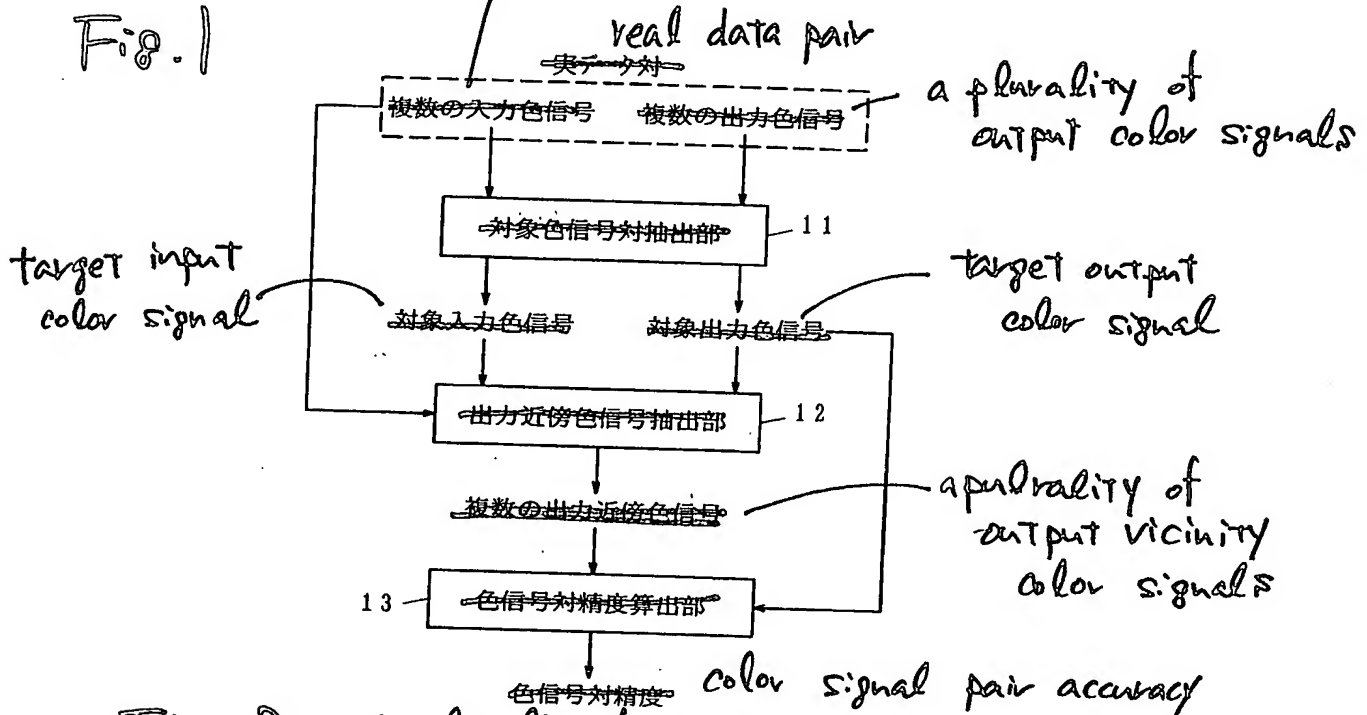 Fig.1
real data pair
実データ対
複数の入力色信号 複数の出力色信号
a plurality of
output color signals
対象色信号対抽出部
11
target input
color signal
対象入力色信号 対象出力色信号
target output
color signal
出力近傍色信号抽出部
12
複数の出力近傍色信号
apulrality of
output vicinity
color signals
13
色信号対精度算出部
色信号対精度
color signal pair accuracy